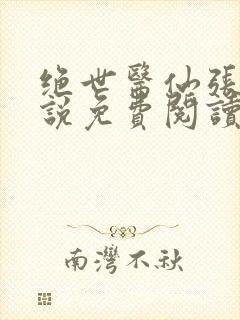 绝世醫仙張
説免費閱讀
南灣不秋